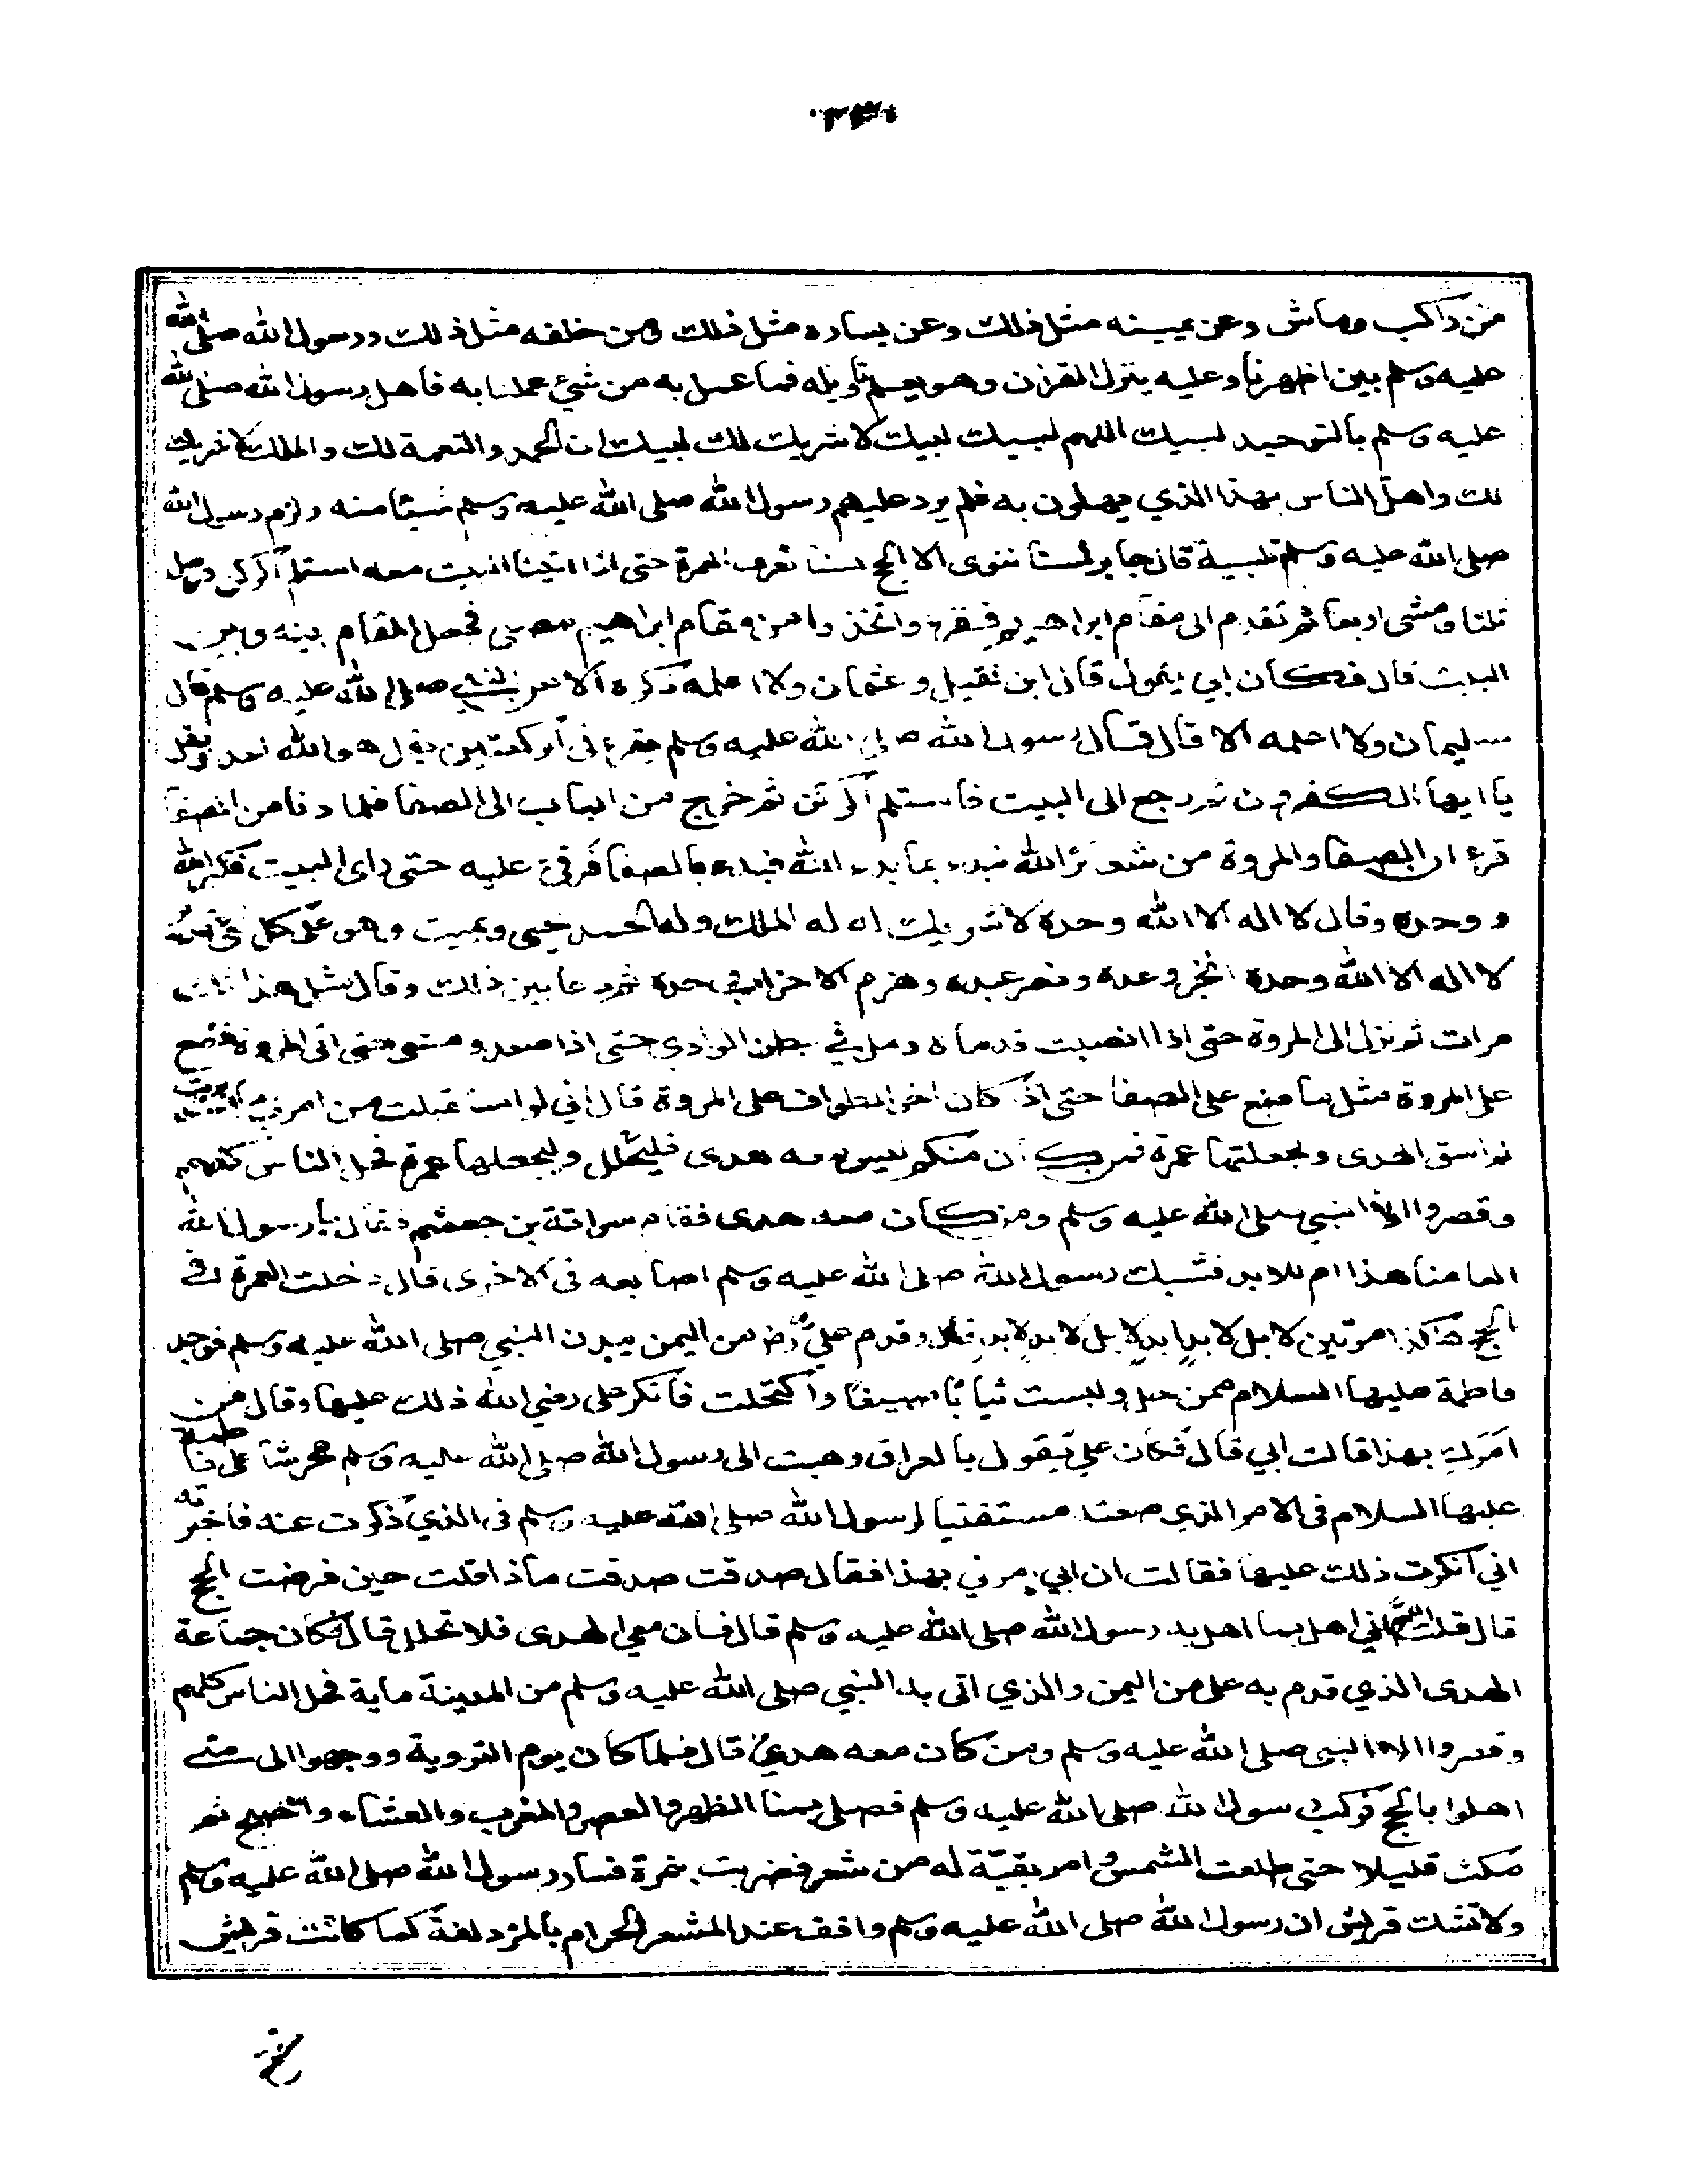 من راكب وماش وعن يمينه مثل ذلك وعن يساره مثل ذلك ومن خلفه مثل ذلك ورسول الله صلى الله
عليه وسلم بين اظهرنا وعليه ينزل القران وهو يعلم تاويله فما عمل به من شيء عملنا به فاهل رسول الله صلى الله
عليه وسلم بالتوحيد لبيك اللهم لبيك لبيك لا شريك لك لبيك ان الحمد والنعمة لك والملك لا شريك
لك واهل الناس بهذا الذي يهلون به فلم يرد عليهم رسول الله صلى الله عليه وسلم شيئا منه ولزم رسول الله
صلى الله عليه وسلم تلبيته قال جابر لسنا ننوى الا الحج لسنا نعرف العمرة حتى اذا اتينا البيت معه استلم الركن ورمل
ثلثا ومشى اربعا ثم تقدم الى مقام ابراهيم فقرا واتخذوا من مقام ابراهيم مصلى فجعل المقام بينه وبين
البيت قال فكان ابي يقول قال ابن نفيل وعثمان ولا اعلمه ذكره الا عن النبي صلى الله عليه وسلم قال
سليمان ولا اعلمه الا قال قال رسول الله صلى الله عليه وسلم يقرء في الركعتين بقل هو الله احد وبقل
يا ايها الكفرون ثم رجع الى البيت فاستلم الركن ثم خرج من الباب الى الصفا فلما دنا من الصفا
قرء ان الصفا والمروة من شعائر الله نبدء بما بدء الله فبدء بالصفا فرقى عليه حتى راى البيت فكبر الله
و وحده وقال لا اله الا الله وحده لا شريك له له الملك وله الحمد يحيى ويميت وهو على كل شئ قدير
لا اله الا الله وحده انجز وعده ونصر عبده وهزم الاحزاب وحده ثم دعا بين ذلك وقال مثل هذا ثلاث
مرات ثم نزل الى المروة حتى اذا انصبت قدماه رمل في بطن الوادي حتى اذا صعد ومشى حتى اتى المروة فصنع
على المروة مثل ما صنع على الصفا حتى اذا كان اخر الطواف على المروة قال اني لو استقبلت من امري ما استدبرت
لم اسق الهدى ولجعلتها عمرة فمن كان منكم ليس معه هدى فليحلل وليجعلها عمرة فحل الناس كلهم
وقصروا الا النبي صلى الله عليه وسلم ومن كان معه هدى فقام سراقة بن جعشم فقال يا رسول الله
العامنا هذا ام للابد فشبك رسول الله صلى الله عليه وسلم اصابعه في الاخرى قال دخلت العمرة في
الحج هكذا مرتين لا بل لابد ابد لا بل لابد لابد قال وقدم علي رض من اليمن ببدن النبي صلى الله عليه وسلم فوجد
فاطمة عليها السلام ممن حل ولبست ثيابا صبيغا واكتحلت فانكر على رضي الله ذلك عليها وقال من
امرك بهذا قالت ابي قال فكان علي يقول بالعراق ذهبت الى رسول الله صلى الله عليه وسلم محرشا على فاطمة
عليها السلام في الامر الذي صنعته مستفتيا لرسول الله صلى الله عليه وسلم في الذي ذكرت عنه فاخبرته
اني انكرت ذلك عليها فقالت ان ابي امرني بهذا فقال صدقت صدقت ماذا قلت حين فرضت الحج
قال قلت اللهم اني اهل بما اهل به رسول الله صلى الله عليه وسلم قال فان معي الهدى فلا تحلل قال فكان جماعة
الهدى الذي قدم به على من اليمن والذي اتى به النبي صلى الله عليه وسلم من المدينة ماية فحل الناس كلهم
وقصروا الا النبي صلى الله عليه وسلم ومن كان معه هدي قال فلما كان يوم التروية ووجهوا الى منى
اهلوا بالحج فركب رسول الله صلى الله عليه وسلم فصلى بمنا الظهر والعصر والمغرب والعشاء والصبح ثم
مكث قليلا حتى طلعت الشمس وامر بقبة له من شعر فضربت بنمرة فسار رسول الله صلى الله عليه وسلم
ولا تشك قريش ان رسول الله صلى الله عليه وسلم واقف عند المشعر الحرام بالمزدلفة كما كانت قريش